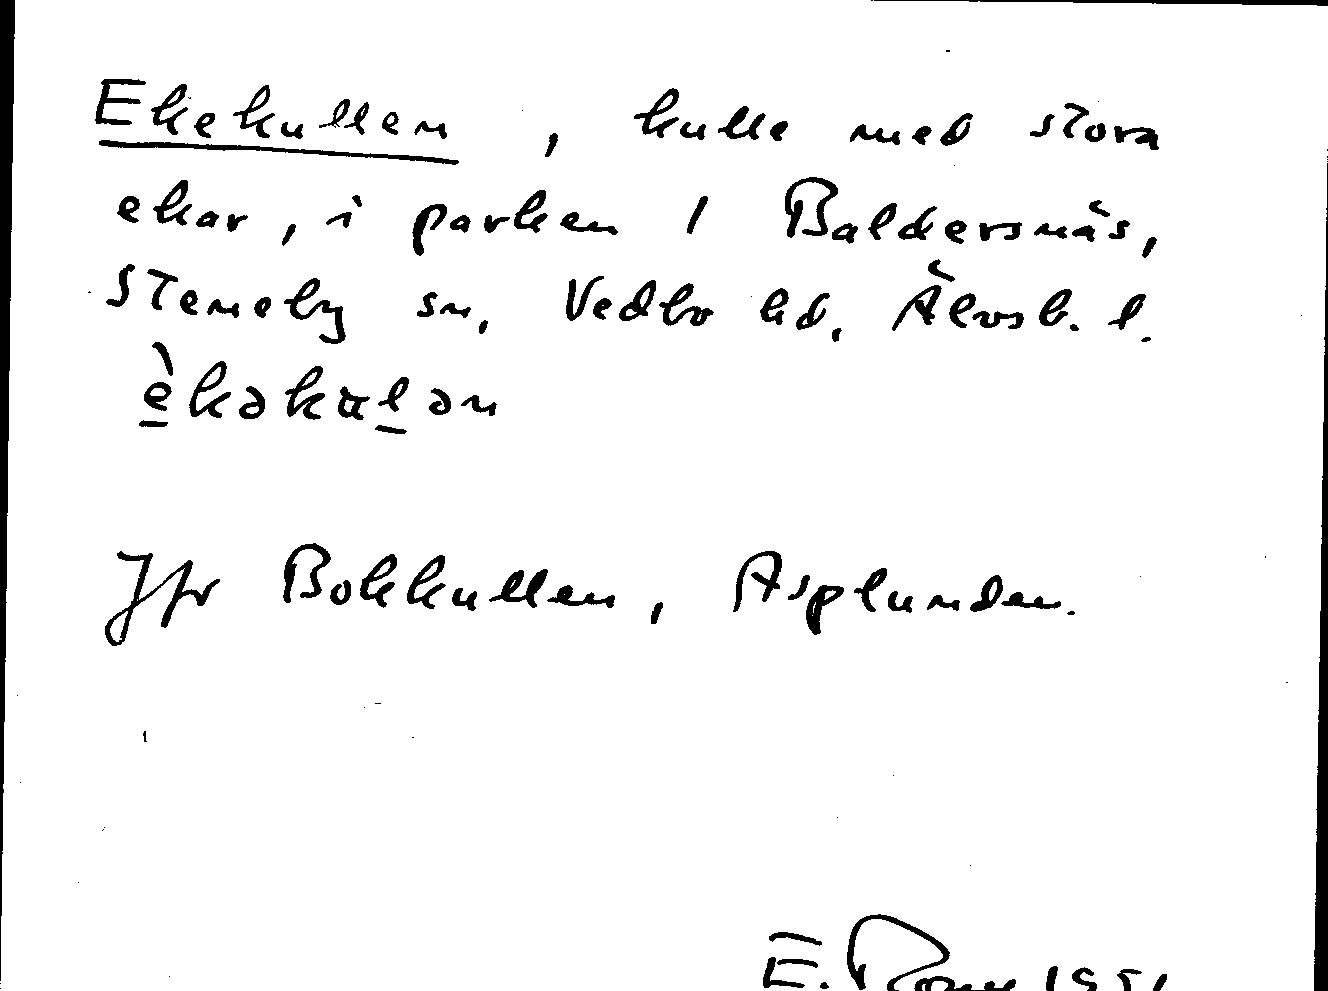 Ekekullen, kulle med stora
ekar, i parken / Baldersnäs,
Steneby sn, Vedbo hd, Älvsb. l.
è̱kəkuḻən
Jfr Bokkullen, Asplunden.
E.